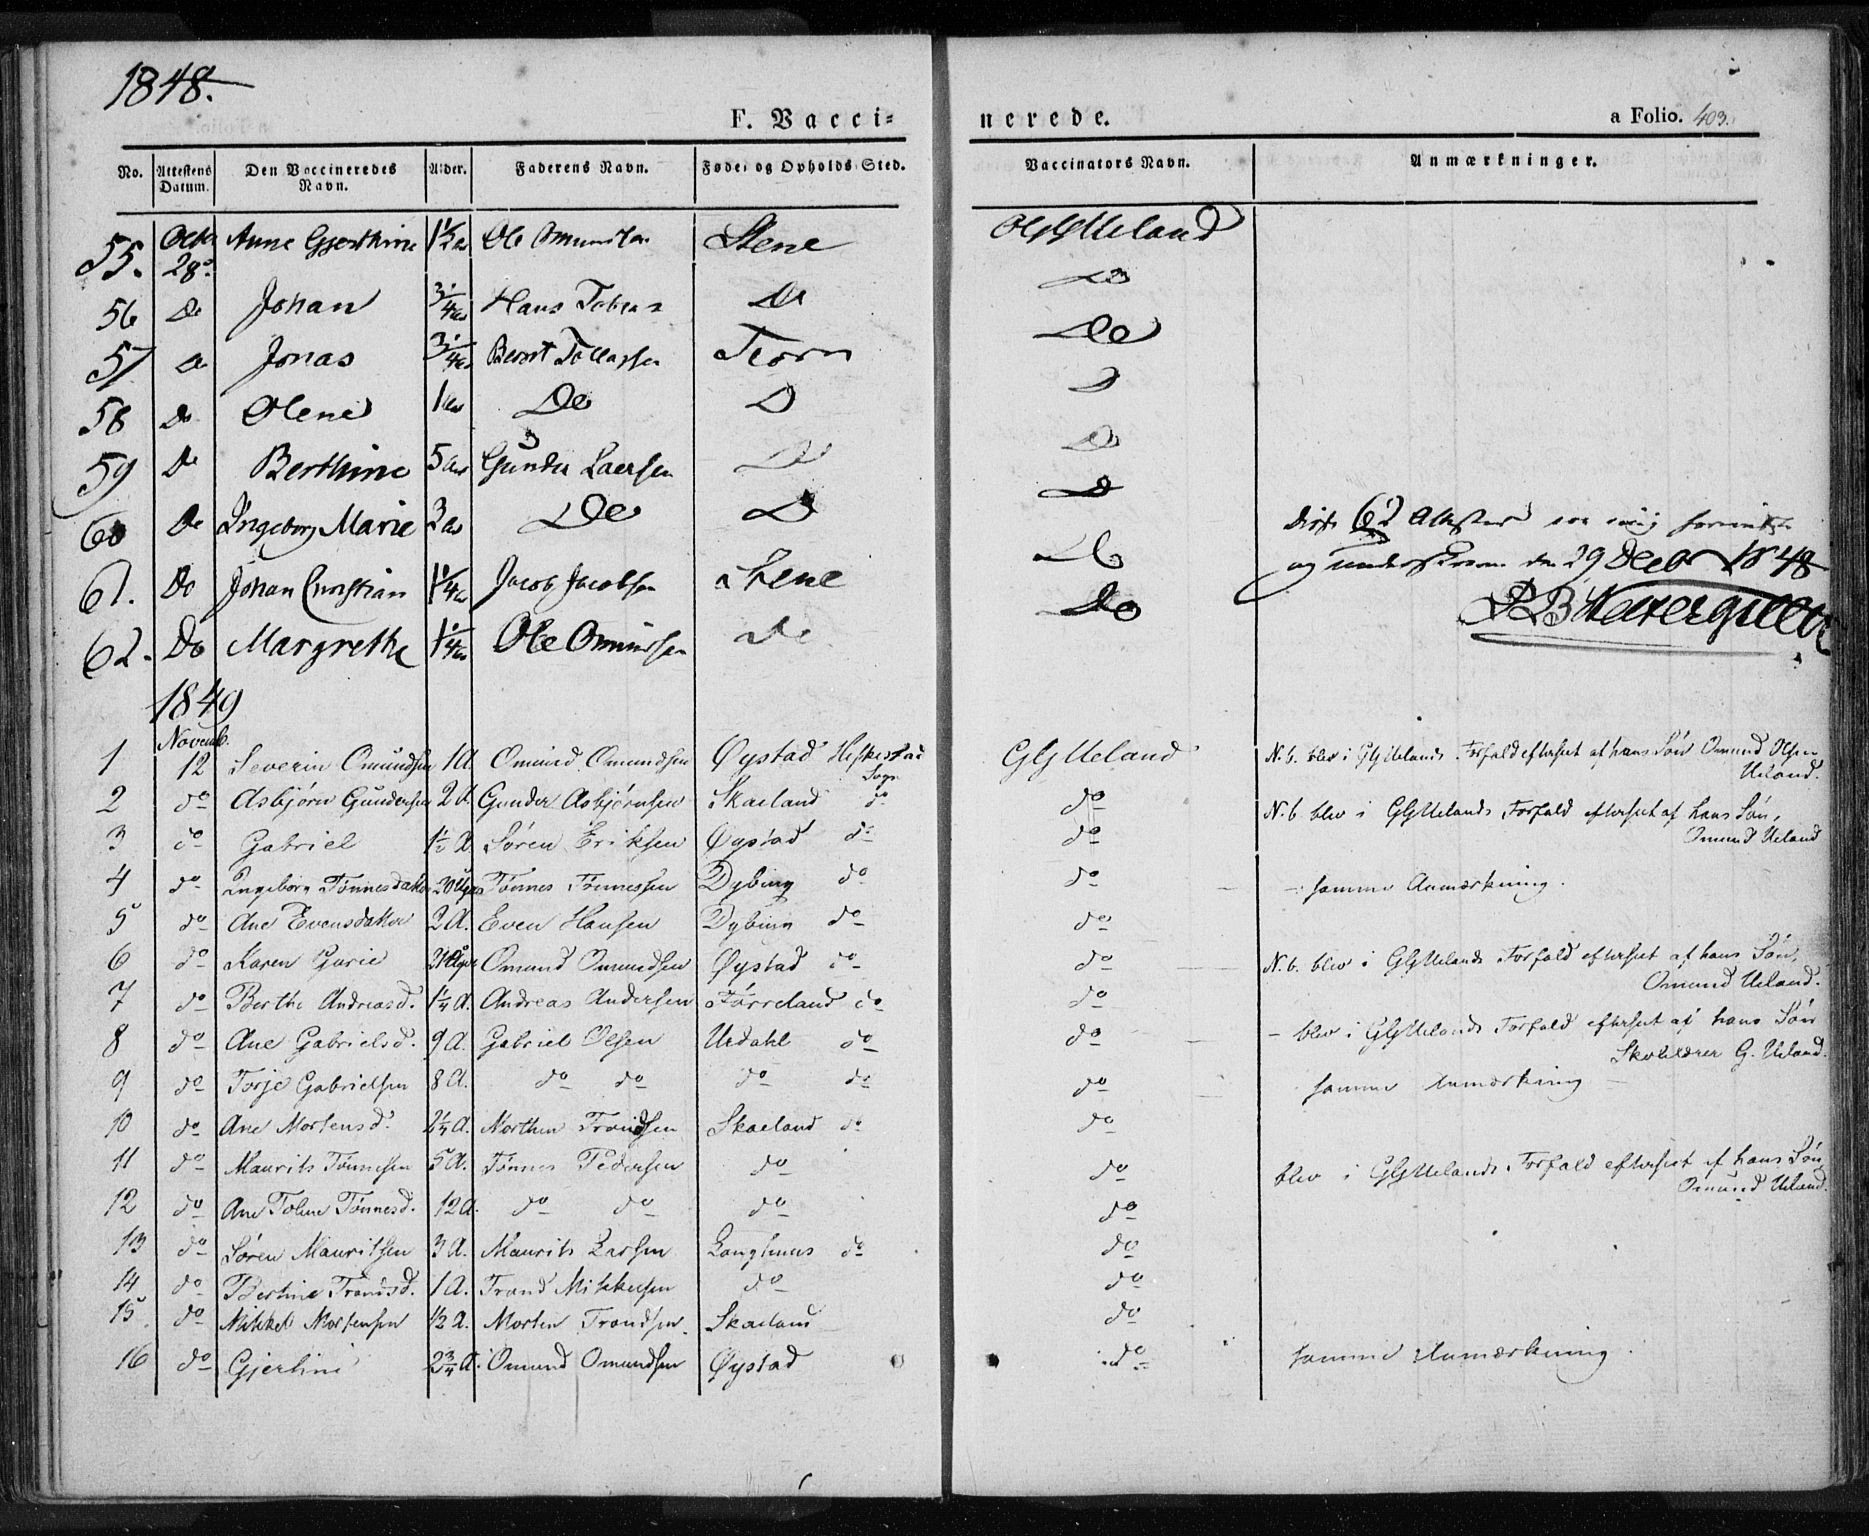 1848.
F. Vacci=nerede. a Folio. 403.
No. Attestens Datum. Den Vaccineredes Navn. Alder. Faderens Navn. Føde- og Opholds Sted. Vaccinators Navn. Anmærkninger.
55. Octbr 28. Anne Gjerthine 1½ Ole Omundsen Stene
56 Do Johan Hans Tobias Do Do
57 Do Jonas Berent Tollagsen Do
58 Do Olene 1 Do D D
59 Do Berthine 5 Gunder Laersen D Do
60 Do Ingeborg Marie 3 De D D
disse 62 Attester
61. Do Johan Christian 1¼ Jacob Jacobsen Stene Do
og den 29 Decbr 1848
62. Do Margrethe 1¼ Ole Omundsen Do Do
1849
Novemb.
1 12 Severin Omundsen 1 A. Omund Omundsen Øystad Heskestad Sogn GG Ueland N.b. blev i GG Uelands Forfald efterseet af hans Søn Omund Olsen Ueland.
2 do Asbjørn Gundersen 2 A. Gunder Asbjørnsen Skaeland do do N.b. blev i GG Uelands Forfald efterseet af hans Søn, Omund Ueland
3 do Gabriel 1½ A Søren Eriksen Øystad do do
4 do Ingeborg Tønnesdatter 20 Uger Tønnes Tønnessen Dybing do do - samme Anmærkning.
5 do Ane Evensdatter 2 A. Even Hansen Dybing do do
6 do Karen Gurie 21 Uger Omund Omundsen Øystad do do N.b. blev i GG Uelands Forfald efterseet af hans Søn, Omund Ueland.
7 do Berthe Andreasd. 1¼ A. Andreas Andersen Førreland do do
8 do Ane Gabrielsd. 9 A. Gabriel Olsen Urdahl do do - blev i GG Uelands Forfald efterseet af hans Søn Skolelærer G. Ueland.
9 do Torje Gabrielsen 8 A. do do do do do samme Anmærkning
10 do Ane Mortensd. 2¼ A. Morthen Trondsen Skaeland do do
11 do Maurits Tønnesen 5 A. Tønnes Pedersen do do blev i GG Uelands Forfald efterseet af hans Søn, Omund Ueland.
12 do Ane Toline Tønnesd. 12 A. do do do do
13 do Søren Mauritsen 3 A. Maurits Larsen Langhuus do do
14 do Bertine Trondsd. 1 A. Trond Mikkelsen do do
15 do Mikkel Mortensen ½ A. Morten Trondsen Skaeland do
16 do Gjertine 2¾ A. Omund Omundsen Øystad do samme Anmærkning.